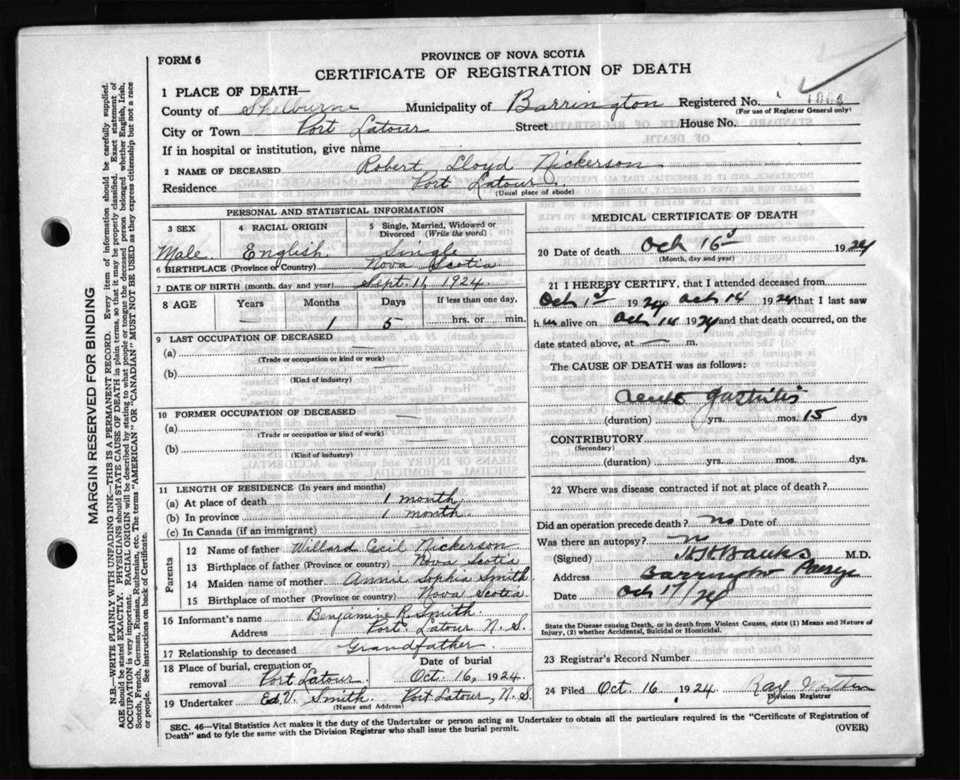 FORM 6
PROVINCE OF NOVA SCOTIA
CERTIFICATE OF REGISTRATION OF DEATH
1 PLACE OF DEATH—
County of Shelburne Municipality of Barrington Registered No.
(For use of Registrar General only)
City or Town Port Latour Street House No.
If in hospital or institution, give name
2 NAME OF DECEASED Robert Lloyd Nickerson
Residence Port Latour
(Usual place of abode)
PERSONAL AND STATISTICAL INFORMATION
3 SEX 4 RACIAL ORIGIN 5 Single, Married, Widowed or Divorced (Write the word)
Male. English. Single
6 BIRTHPLACE (Province or Country) Nova Scotia
7 DATE OF BIRTH (month, day and year) Sept. 11, 1924.
8 AGE Years Months Days If less than one day,
— 1 5 hrs. or min.
9 LAST OCCUPATION OF DECEASED
(a) —
(Trade or occupation or kind or work)
(b) —
(Kind of industry)
10 FORMER OCCUPATION OF DECEASED
(a) —
(Trade or occupation or kind of work)
(b) —
(Kind of industry)
11 LENGTH OF RESIDENCE (In years and months)
(a) At place of death 1 month
(b) In province 1 month
(c) In Canada (if an immigrant)
Parents
12 Name of father Willard Cecil Nickerson
13 Birthplace of father (Province or country) Nova Scotia
14 Maiden name of mother Annie Sophia Smith
15 Birthplace of mother (Province or country) Nova Scotia
16 Informant's name Benjamine R. Smith.
Address Port Latour N. S.
17 Relationship to deceased Grandfather
18 Place of burial, cremation or removal Port Latour. Date of burial Oct. 16, 1924
19 Undertaker Ed. V. Smith Port Latour, N. S.
(Name and Address)
MEDICAL CERTIFICATE OF DEATH
20 Date of death Oct 16 1924
(Month, day and year)
21 I HEREBY CERTIFY, that I attended deceased from
Oct 1st 1924 Oct 14 1924 that I last saw
h im alive on Oct 14 1924 and that death occurred, on the
date stated above, at — m.
The CAUSE OF DEATH was as follows:
acute gastritis
(duration) yrs. mos. 15 dys
CONTRIBUTORY
(Secondary)
(duration) yrs. mos. dys.
22 Where was disease contracted if not at place of death?
Did an operation precede death? no Date of
Was there an autopsy? no
(Signed) Banks M.D.
Address Barrington Passage
Date Oct 17/24
State the Disease causing Death, or in death from Violent Causes, state (1) Means and Nature of
Injury, (2) whether Accidental, Suicidal or Homicidal.
23 Registrar's Record Number
24 Filed Oct. 16 1924 Ray
Division Registrar
SEC. 46—Vital Statistics Act makes it the duty of the Undertaker or person acting as Undertaker to obtain all the particulars required in the "Certificate of Registration of
Death" and to fyle the same with the Division Registrar who shall issue the burial permit. (OVER)
MARGIN RESERVED FOR BINDING
N.B.—WRITE PLAINLY WITH UNFADING INK—THIS IS A PERMANENT RECORD. Every item of information should be carefully supplied.
AGE should be stated EXACTLY. PHYSICIANS should STATE CAUSE OF DEATH in plain terms, so that it may be properly classified. Exact statement of
OCCUPATION is very important. RACIAL ORIGIN will be described by stating to what people or tongue the deceased person belonged whether English, Irish,
Scotch, French, German, Russian, Ruthenian, etc. The terms "AMERICAN" OR "CANADIAN" MUST NOT BE USED as they express citizenship but not a race
or people. See instructions on back of Certificate.